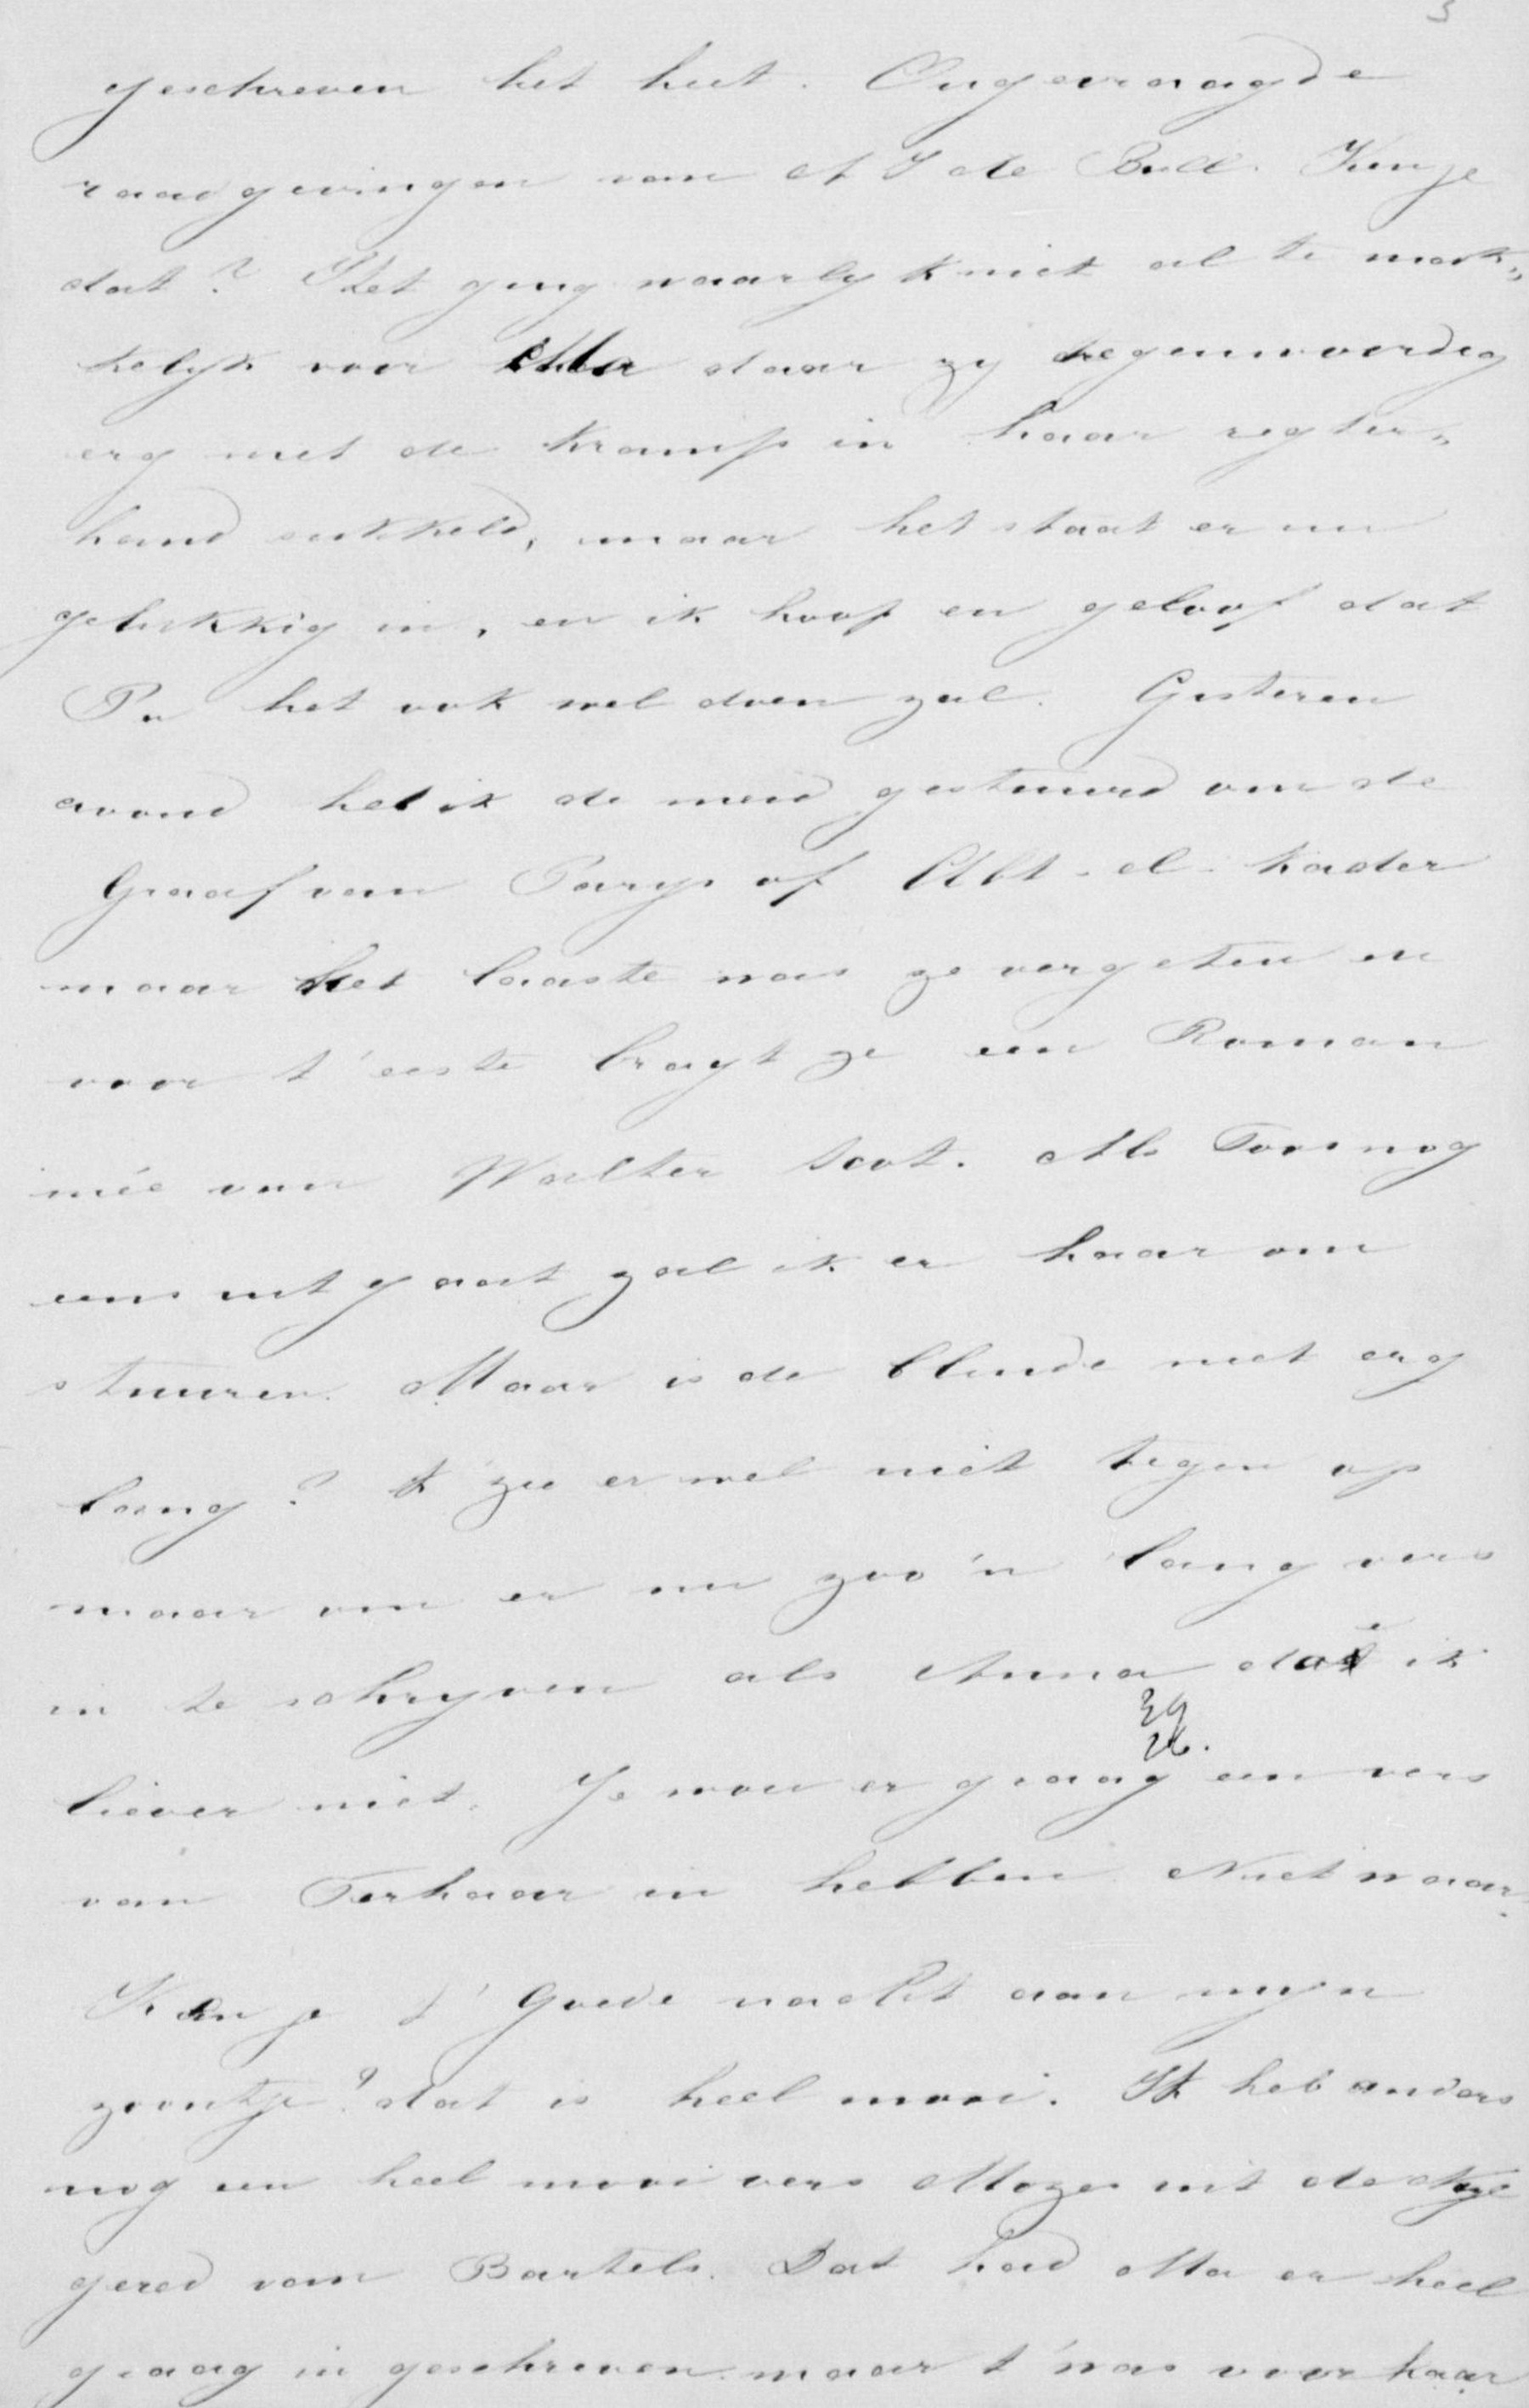 3
geschreven het heet. Ongevraagde
raadgevingen van A J de Bull. Ken je
dat? Het ging waarlyk niet al te mak„
kelyk voor Ma daar zy tegenwoordig
erg met de kramp in haar regter„
hand sukkeld, maar het staat er nu
gelukkig in, en ik hoop en geloof dat
Pa het ook wel doen zal. Gisteren
avond heb ik de meid gestuurd om de
Graaf van Parys of Abt-el-Kader
maar het laaste was ze vergeten en
voor t'eeste bragt ze een Roman
meê van Walter Scot. Als Toos nog
eens uit gaat zal ik er haar om
sturen. Maar is de blinde niet erg
lang? k zie er wel niet tegen op
maar om er nu zoo'n lang vers
in te schryven als Anna doe ik
29
26.
liever niet. Je wou er graag een vers
van Terhaar in hebben Niet waar.
Ken je t' Goede nacht aan myn
zoontje? dat is heel mooi. Ik heb anders
nog een heel mooi vers Mozes uit de Nyl
gered van Bartels. Dat had Ma er heel
graag in geschreven maar t'was voor haar